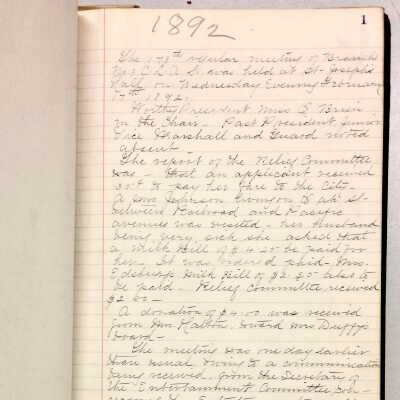 1892
1
The 178th regular meeting of Branch
No. 5 L. A. S. was held at St. Joseph's
Hall on Wednesday Evening February
17th 1892.
Worthy President Miss O'Brien
in the Chair. Past President Junior
Vice Marshall and Guard noted
absent
The report of the Relief Committee
was - that an applicant received
35cts to pay her fare to the City -
A Mrs Johnson living on D. ch. St-
between Railroad and Pacific
avenues was visited - her husband
being very sick she asked that
a Milk Bill of $4.20 be paid for
her. It was ordered paid - Mrs.
Milk Bill of $2.20 also to
be paid. Relief Committee received
$2.60 -
A donation of $4.00 was received
from Mrs. toward Mrs Duffy's
board -
The meeting was one day earlier
than usual owing to a communication
being received from the Secretary of
the Entertainment Committee